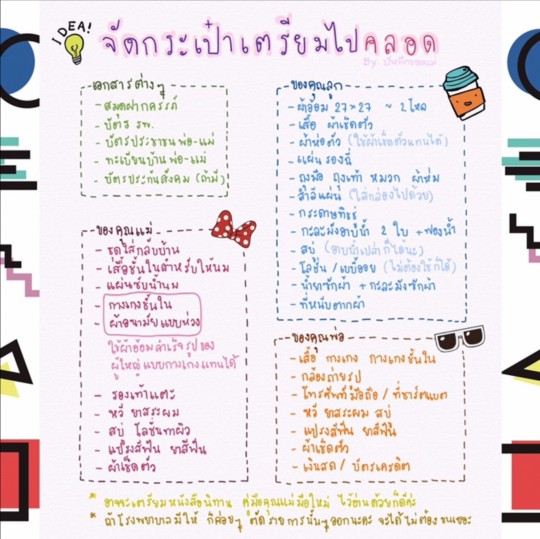 IDEA!
จัดกระเป๋าเตรียมไปคลอด
เอกสารต่างๆ
- สมุดฝากครรภ์
- บัตร รพ.
- บัตรประชาชน พ่อ-แม่
- ทะเบียนบ้าน พ่อ-แม่
- บัตรประกันสังคม (ถ้ามี)
ของคุณแม่
- ชุดใส่กลับบ้าน
- เสื้อชั้นในสำหรับให้นม
- แผ่นซับน้ำนม
- กางเกงชั้นใน
- ผ้าอนามัยแบบห่วง
ใช้ผ้าอ้อมสำเร็จรูปของ
ผู้ใหญ่ แบบกางเกงแทนได้
- รองเท้าแตะ
- หวี ยาสระผม
- สบู่ โลชั่นทาผิว
- แปรงสีฟัน ยาสีฟัน
- ผ้าเช็ดตัว
ของคุณลูก
- ผ้าอ้อม 27×27 ~ 2 โหล
- เสื้อ ผ้าเช็ดตัว
- ผ้าห่อตัว (ใช้ผ้าเช็ดตัวแทนได้)
- แผ่นรองฉี่
- ถุงมือ ถุงเท้า หมวก ผ้าห่ม
- สำลีแผ่น (ใส่กล่องไปด้วย)
- กระดาษทิชชู่
- กะละมังอาบน้ำ 2 ใบ + ฟองน้ำ
- สบู่ (อาบน้ำเปล่าก็ได้นะ)
- โลชั่น / เบบี้ออย (ไม่ต้องใช้ก็ได้)
- น้ำยาซักผ้า + กะละมังซักผ้า
- ที่หนีบตากผ้า
ของคุณพ่อ
- เสื้อ กางเกง กางเกงชั้นใน
- กล้องถ่ายรูป
- โทรศัพท์มือถือ / ที่ชาร์ตแบต
- หวี ยาสระผม สบู่
- แปรงสีฟัน ยาสีฟัน
- ผ้าเช็ดตัว
- เงินสด / บัตรเครดิต
* อาจจะเตรียมหนังสือนิทาน คู่มือคุณแม่มือใหม่ ไว้อ่านด้วยก็ดีค่ะ
* ถ้าโรงพยาบาลมีให้ ก็ค่อยๆ ตัดรายการนั้นๆออกนะคะ จะได้ไม่ต้องขนเยอะ